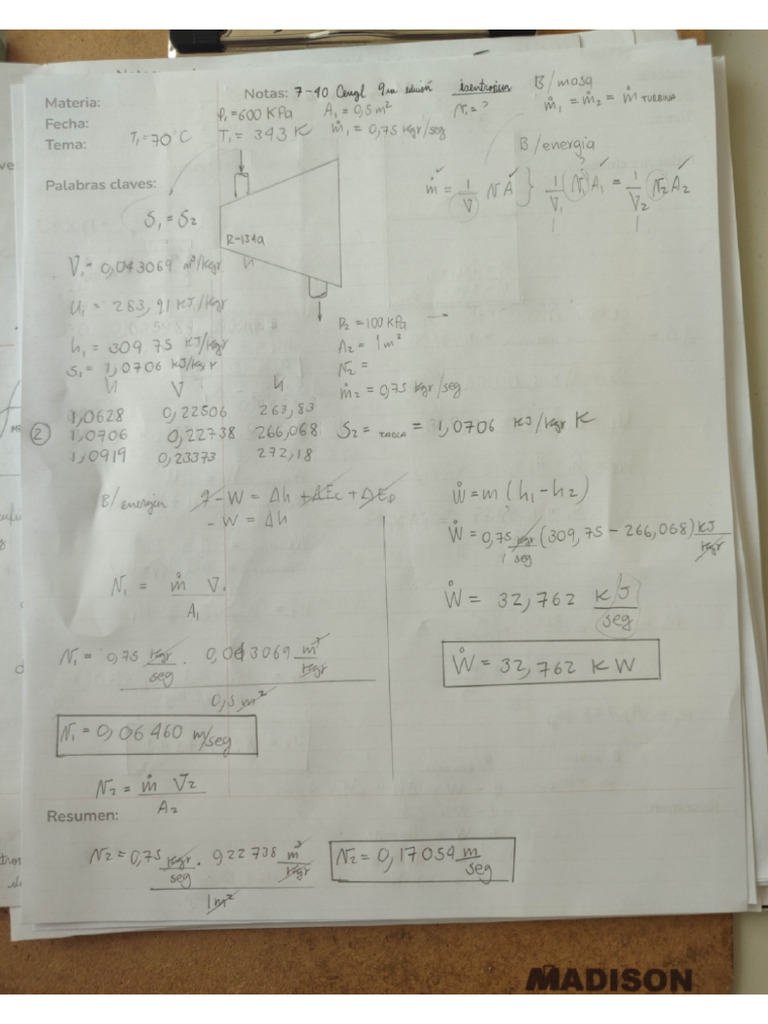 Materia:
Notas: 7-40 Cengl 9na edición isentropico
B/masa
Fecha:
P₁=600 KPa A₁=0,5m² N₁=?
ṁ₁ = ṁ₂ = ṁ TURBINA
Tema: T₁=70°C T₁= 343 K ṁ₁=0,75 Kgr/seg
B/energia
Palabras claves:
ṁ = 1/V NA } 1/V₁ N₁A₁ = 1/V₂ N₂A₂
S₁ = S₂
R-134a
V₁= 0,043069 m³/Kgr
U₁ = 283,91 KJ/Kgr
h₁ = 309 75 KJ/Kgr
S₁= 1,0706 KJ/Kgr
P₂ =100 KPa
A₂ = 1 m²
N₂ =
ṁ₂ = 0,75 Kgr/seg
1,0628 0,22506 263,83
② 1,0706 0,22738 266,068
1,0919 0,23373 272,18
S₂ = TABLA = 1,0706 KJ/Kgr K
B/ energia q - W = Δh + ΔEc + ΔEp
- W = Δh
Ẇ = m (h₁-h₂)
Ẇ = 0,75 Kgr/seg (309,75 - 266,068) KJ/Kgr
Ẇ = 32,762 KJ/seg
Ẇ = 32,762 KW
N₁ = ṁ V₁/A₁
N₁ = 0,75 Kgr/seg . 0,043069 m³/Kgr
0,5 m²
N₁ = 0,06460 m/seg
N₂ = ṁ V₂/A₂
Resumen:
N₂ = 0,75 Kgr/seg . 0,22738 m³/Kgr
1 m²
N₂ = 0,17054 m/seg
MADISON